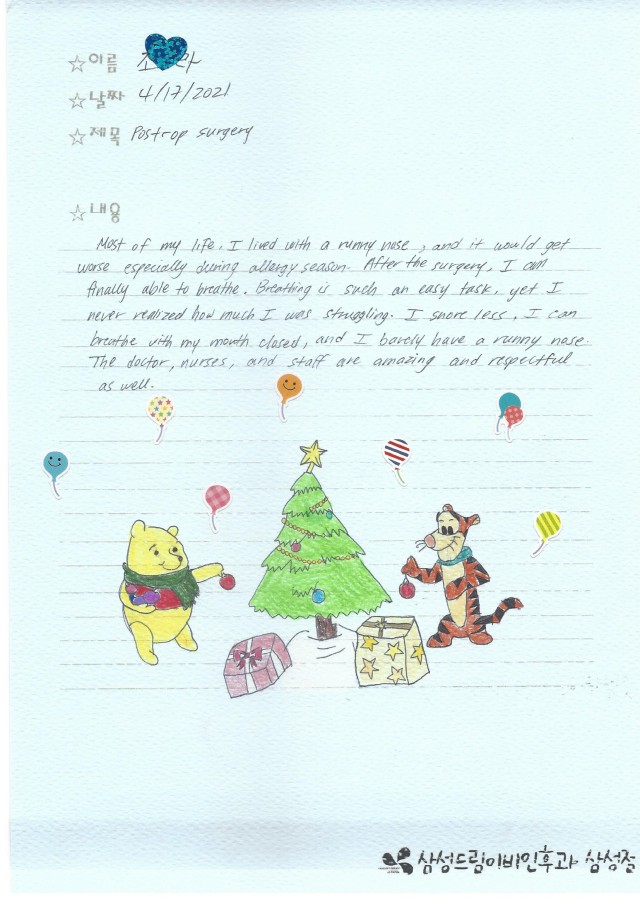 ☆이름 조 라
☆날짜 4/17/2021
☆제목 Postrop surgery
☆내용
Most of my life, I lived with a runny nose, and it would get
worse especially during allergy season. After the surgery, I am
finally able to breathe. Breathing is such an easy task, yet I
never realized how much I was struggling. I snore less, I can
breathe with my mouth closed, and I barely have a runny nose.
The doctor, nurses, and staff are amazing and respectful
as well.
삼성드림이비인후과 삼성점